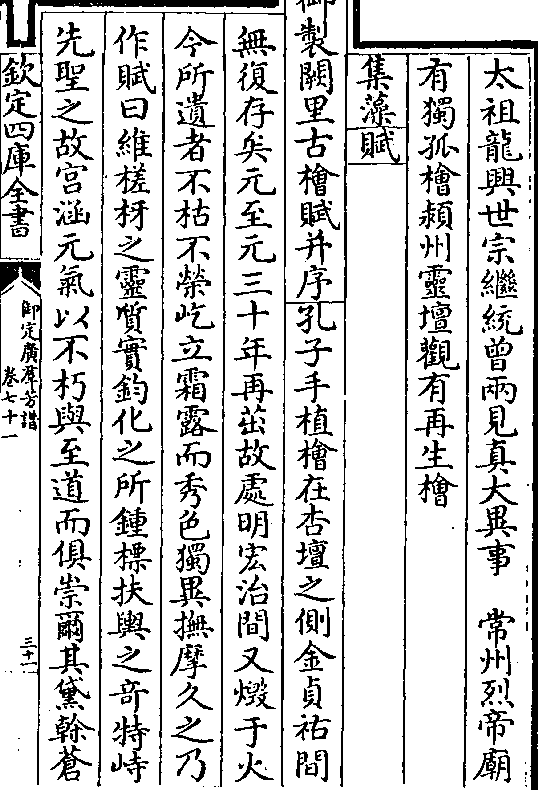 太祖龍興世宗繼統曾兩見真大異事　常州烈帝廟
有獨孤檜潁州靈壇觀有再生檜
集藻賦
御製闕里古檜賦并序孔子手植檜在杏壇之側金貞祐間
無復存矣元至元三十年再茁故處明宏治間又燬于火
今所遺者不枯不榮屹立霜露而秀色獨異撫摩久之乃
作賦曰維槎枒之靈質實鈞化之所鍾標扶輿之奇特峙
先聖之故宮涵元氣以不朽與至道而俱崇爾其黛榦蒼
欽定四庫全書
御定廣羣芳譜
卷七十一
三十一